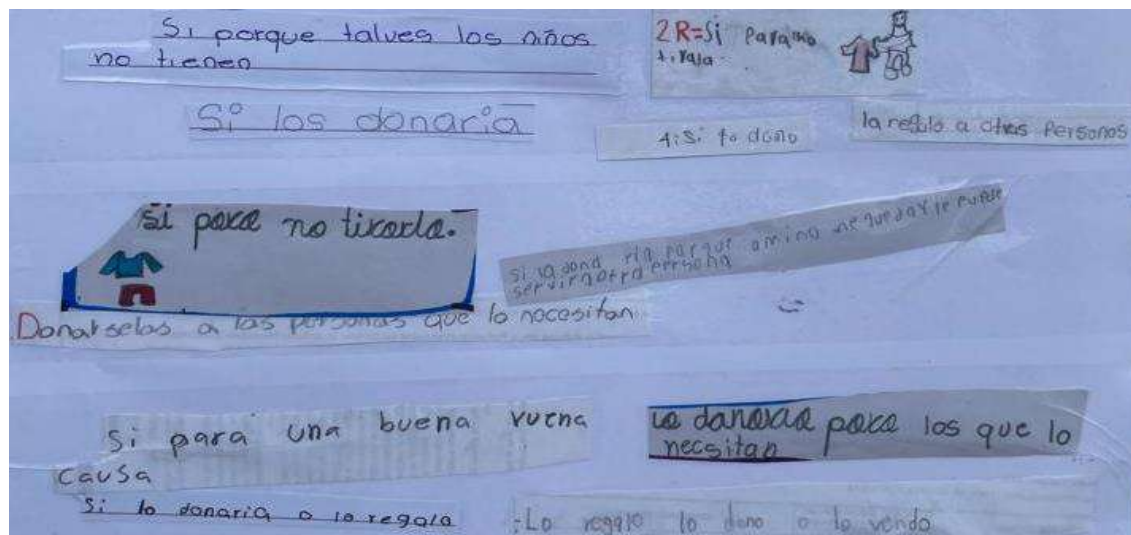 Si porque talves los niños
no tienen
2 R=Si Para no
tirala
Si los donaria
4: Si to dono
la regalo a otras Personas
Si para no tirarla.
si la dona ria parque ami no me quedar le puede
servir aotra persona
Donarselas a las personas que lo nocesitan
Si para una buena vuena
causa
lo donaria para los que lo
necsitan
Si lo donaria o lo regalo
:Lo regalo lo dono o lo vendo